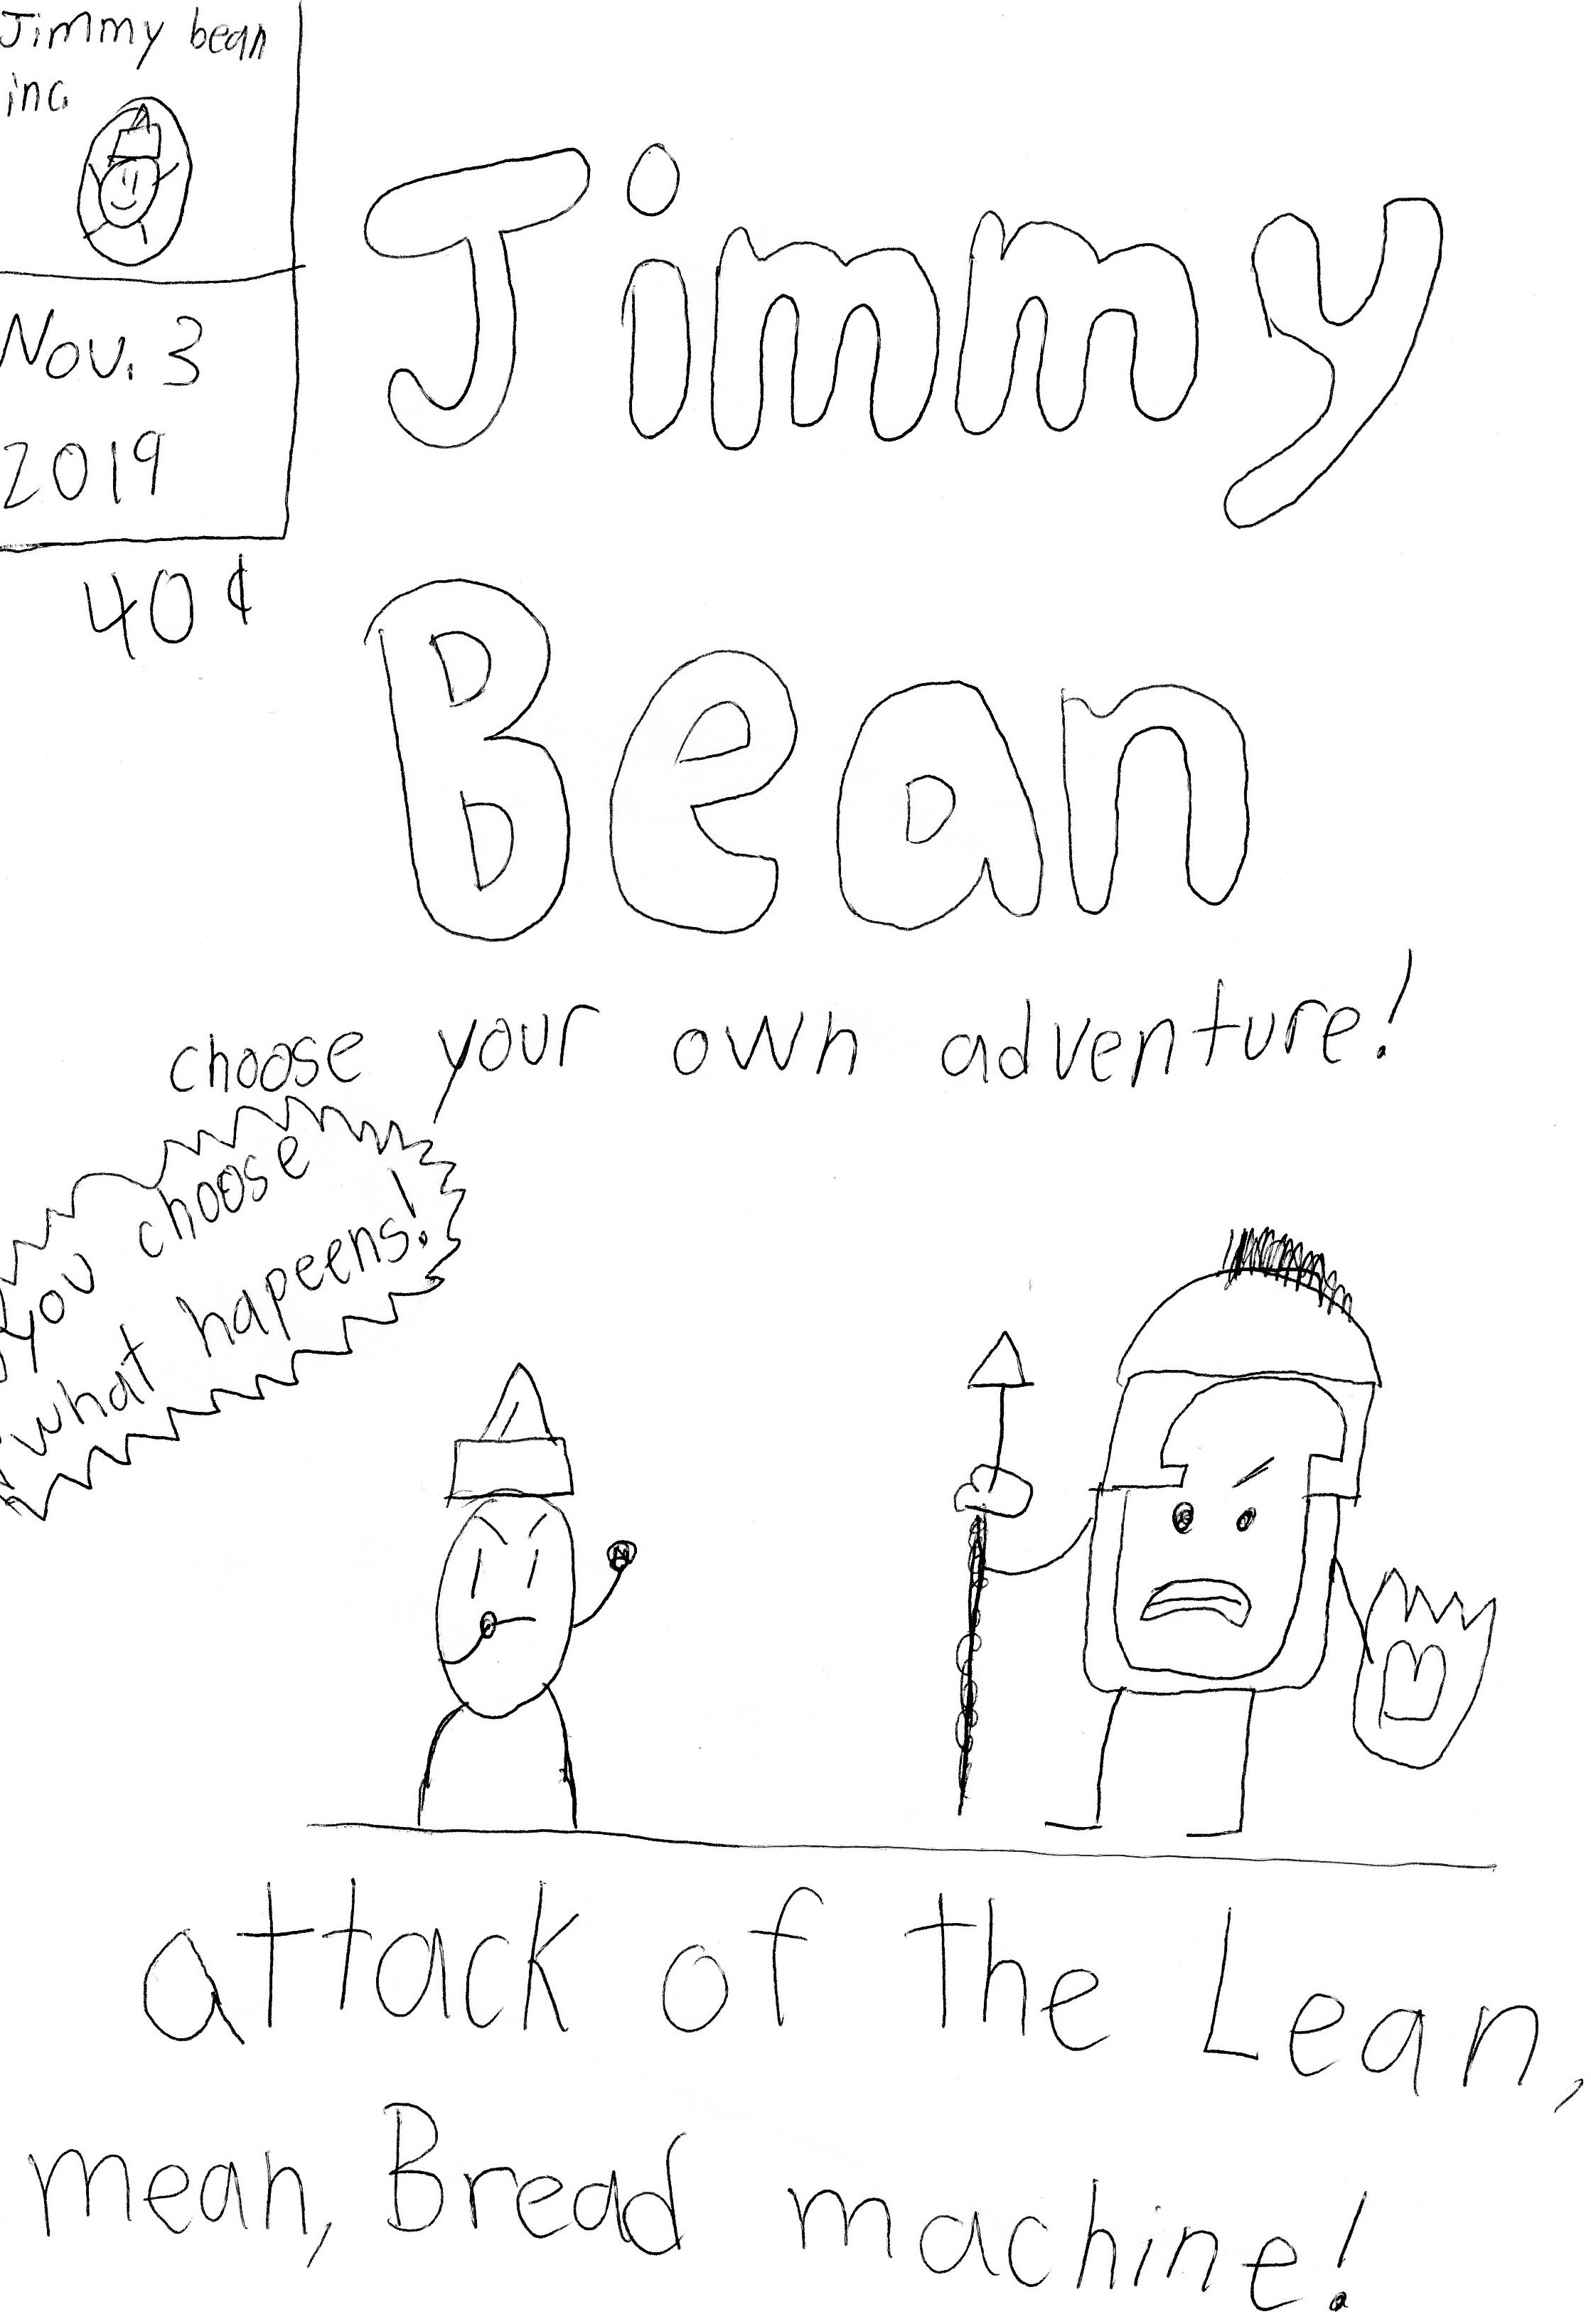 Jimmy bean
inc.
Nov. 3
2019
40¢
Jimmy
Bean
choose your own adventure!
you choose
what hapeens!
attack of the Lean,
mean, Bread machine!